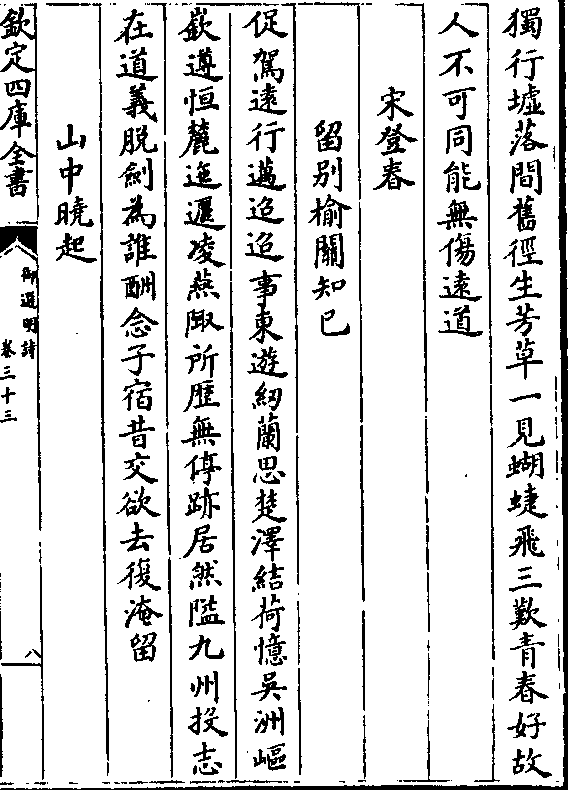 獨行墟落間舊徑生芳草一見蝴蜨飛三歎青春好故
人不可同能無傷遠道
宋登春
留别榆關知已
促駕遠行邁迢迢事東遊紉蘭思楚澤結荷憶吳洲嶇
嶔遵恒麓迤邐凌燕陬所歴無停跡居然隘九州投志
在道義脱劍為誰酬念子宿昔交欲去復淹留
山中曉起
欽定四庫全書
御選明詩
卷三十三
八